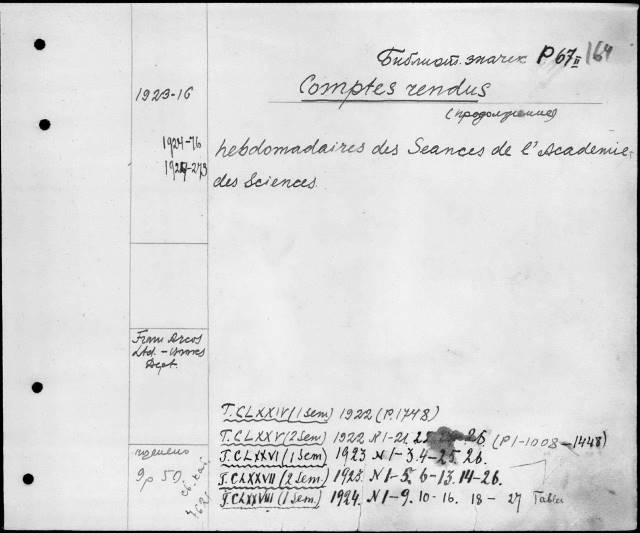 Библиот. значек P67II 164
Comptes rendus
(продолжение)
1923-16
1924-76
1927-273
hebdomadaires des Seances de l'Academie
des Sciences.
From Arcos
Ltd.
Dept.
T. CLXXIV (1 Sem) 1922 (P. 1748)
T. CLXXV (2 Sem) 1922 N 1-21. 26 (P 1-1008-1448)
T. CLXXVI (1 Sem) 1923 N 1-3. 4-25. 26.
T. CLXXVII (2 Sem) 1923. N 1-5. 6-13. 14-26.
T. CLXXVIII (1 Sem) 1924. N 1-9. 10-16. 18-27 Tables
9р 50